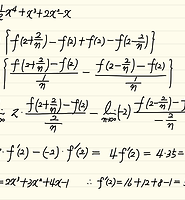 ½x⁴+x³+2x²-x
{f(2+2/n)-f(2)+f(2)-f(2-2/n)}
{(f(2+2/n)-f(2))/(1/n) - (f(2-2/n)-f(2))/(1/n)}
2·(f(2+2/n)-f(2))/(2/n) - lim (-2) (f(2-2/n)-f
·f'(2)-(-2)·f'(2)=4f'(2)=4·35=
=2x³+3x²+4x-1 ∴ f'(2)=16+12+8-1=3